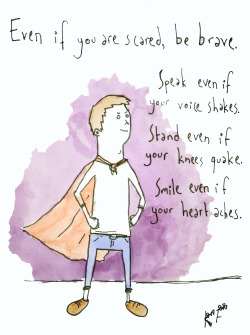 Even if you are scared, be brave.
Speak even if
your voice shakes.
Stand even if
your knees quake.
Smile even if
your heart aches.